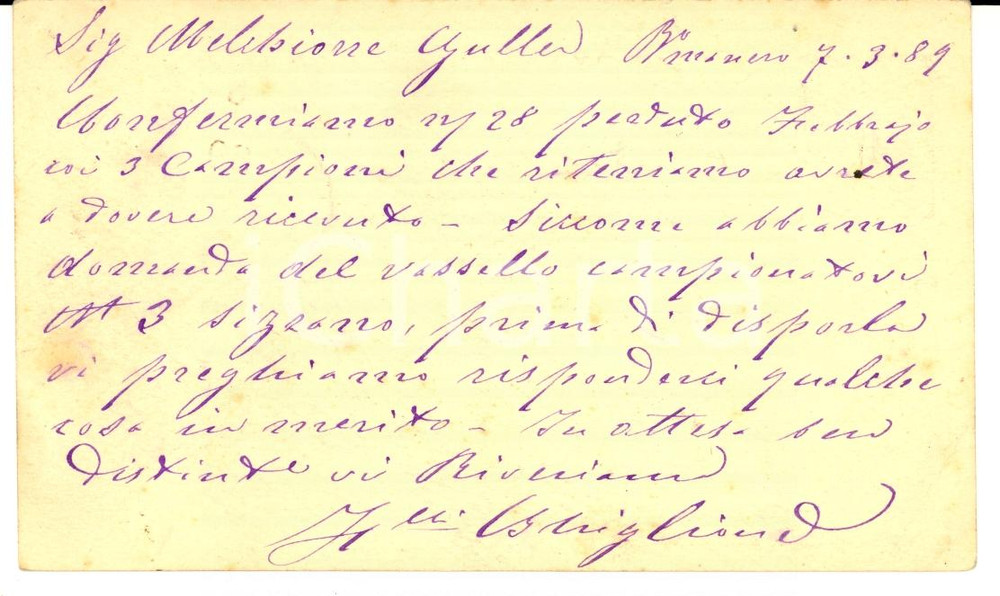 Sig Melchiorre Guller B.manero 7.3.89
Confermiamo n/ 28 perduto Febbrajo
coi 3 Campioni che riteniamo avrete
a dovere ricevuto - Siccome abbiamo
domanda del vassello campionatovi
N 3 Sizzano, prima di disporla
vi preghiamo risponderci qualche
cosa in merito - In attesa ben
distinte vi Riveriam
Flli
iCharta